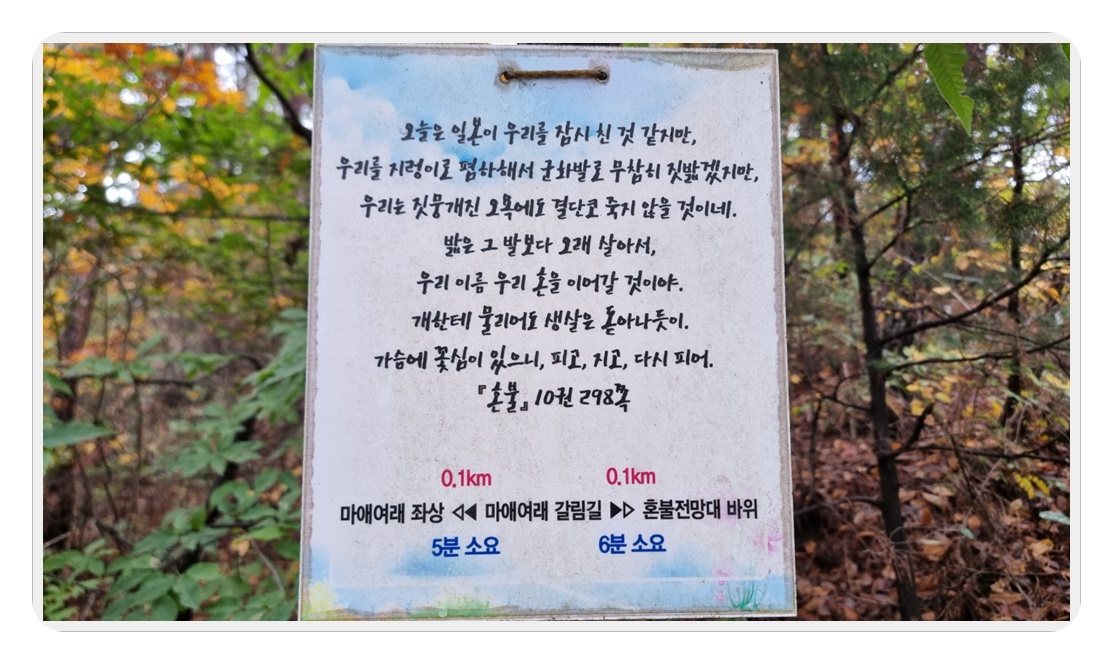 오늘은 일본이 우리를 잠시 친 것 같지만,
우리를 지렁이로 폄하해서 군화발로 무참히 짓밟겠지만,
우리는 짓뭉개진 오욕에도 결단코 죽지 않을 것이네.
밟은 그 발보다 오래 살아서,
우리 이름 우리 혼을 이어갈 것이야.
개한테 물리어도 생살은 돋아나듯이.
가슴에 꽃심이 있으니, 피고, 지고, 다시 피어.
『혼불』 10권 298쪽
0.1km 0.1km
마애여래 좌상 ◁◀ 마애여래 갈림길 ▶▷ 혼불전망대 바위
5분 소요 6분 소요